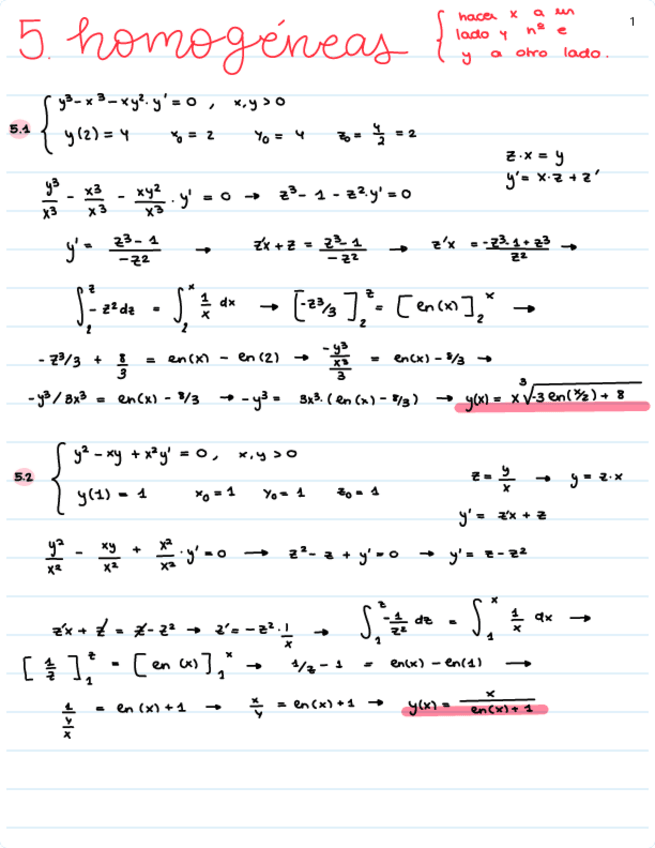 5. homogéneas { hacer x a un
lado y nº e
y a otro lado.
1
5.1 { y³ - x³ - xy²·y' = 0 , x,y > 0
y(2) = 4 x₀ = 2 y₀ = 4 z₀ = 4/2 = 2
z·x = y
y' = x·z + z'
y³/x³ - x³/x³ - xy²/x³ · y' = 0 → z³ - 1 - z²·y' = 0
y' = z³-1/-z² → z'x + z = z³-1/-z² → z'x = -z³-1+z³/z² →
∫₂ᶻ -z²dz = ∫₂ˣ 1/x dx → [-z³/3]₂ᶻ = [en(x)]₂ˣ →
-z³/3 + 8/3 = en(x) - en(2) → -y³/x³/3 = en(x) - 8/3 →
-y³/3x³ = en(x) - 8/3 → -y³ = 3x³·(en(x) - 8/3) → y(x) = x ³√-3 en(x/2) + 8
5.2 { y² - xy + x²y' = 0, x,y > 0
y(1) = 1 x₀ = 1 y₀ = 1 z₀ = 1
z = y/x → y = z·x
y' = z'x + z
y²/x² - xy/x² + x²/x² · y' = 0 → z² - z + y' = 0 → y' = z - z²
z'x + z = z - z² → z' = -z²·1/x → ∫₁ᶻ -1/z² dz = ∫₁ˣ 1/x dx →
[1/z]₁ᶻ = [en(x)]₁ˣ → 1/z - 1 = en(x) - en(1) →
1/y/x = en(x) + 1 → x/y = en(x) + 1 → y(x) = x/en(x) + 1